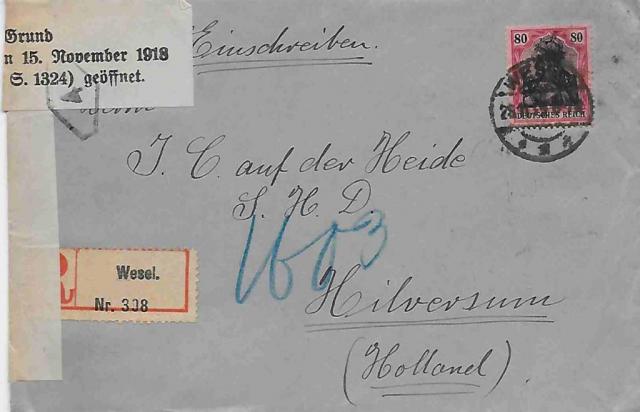 Grund
n 15. November 1918
S. 1324) geöffnet.
Einschreiben.
80 80
DEUTSCHES REICH
J. C. auf der Heide
S. H. D.
1603
Wesel.
Nr. 308
Hilversum
(Holland)